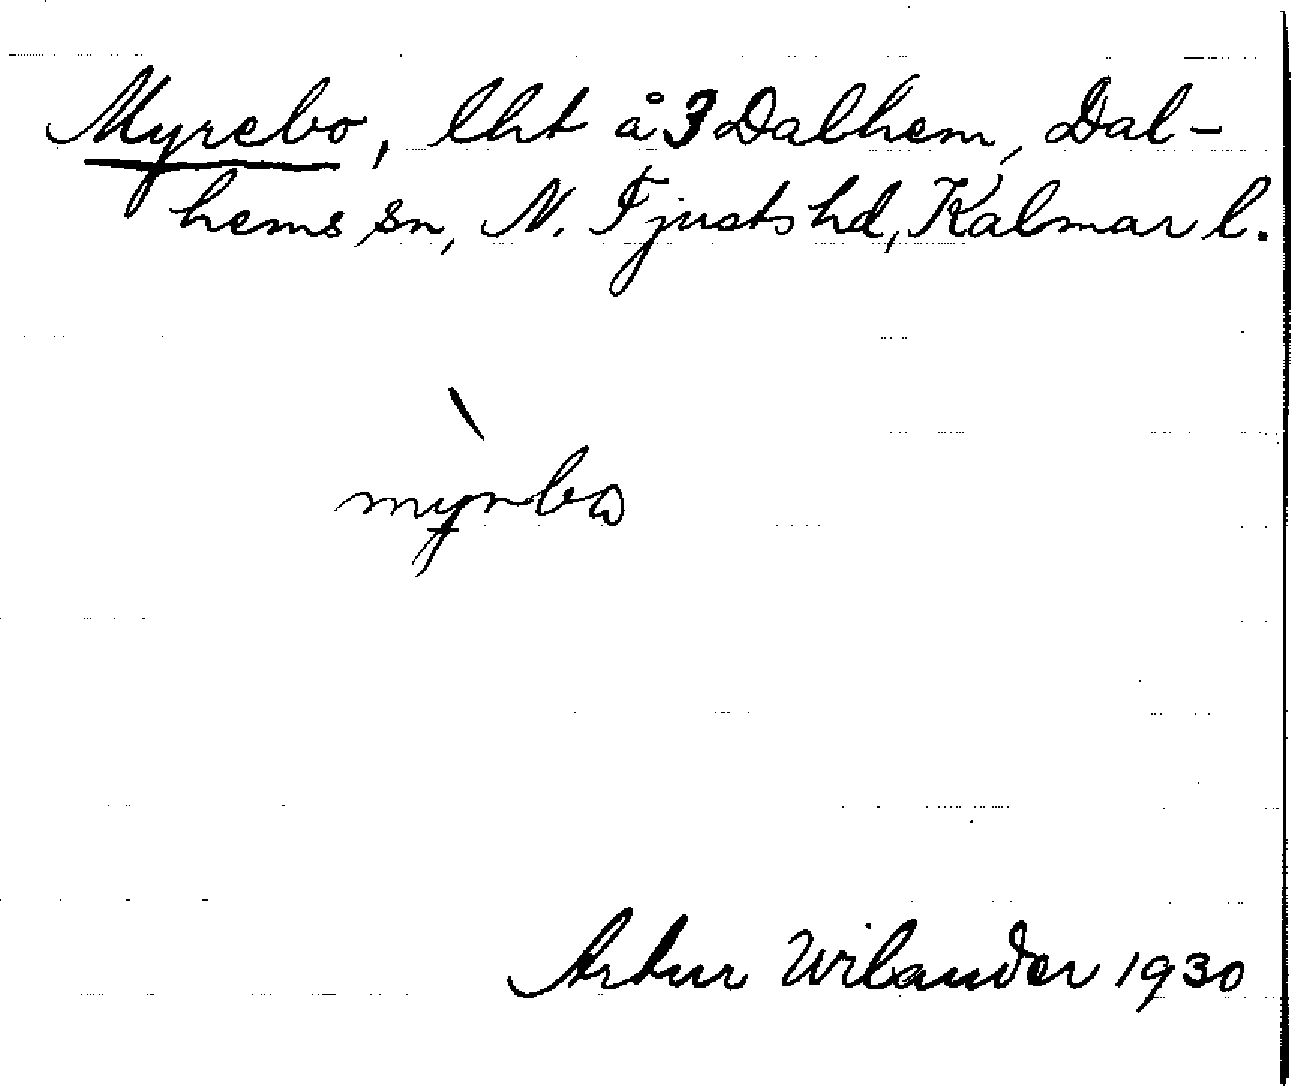 Myrebo, lht å 3 Dalhem, Dal-
hems sn, N. Tjusts hd, Kalmar l.
Artur Wilander 1930